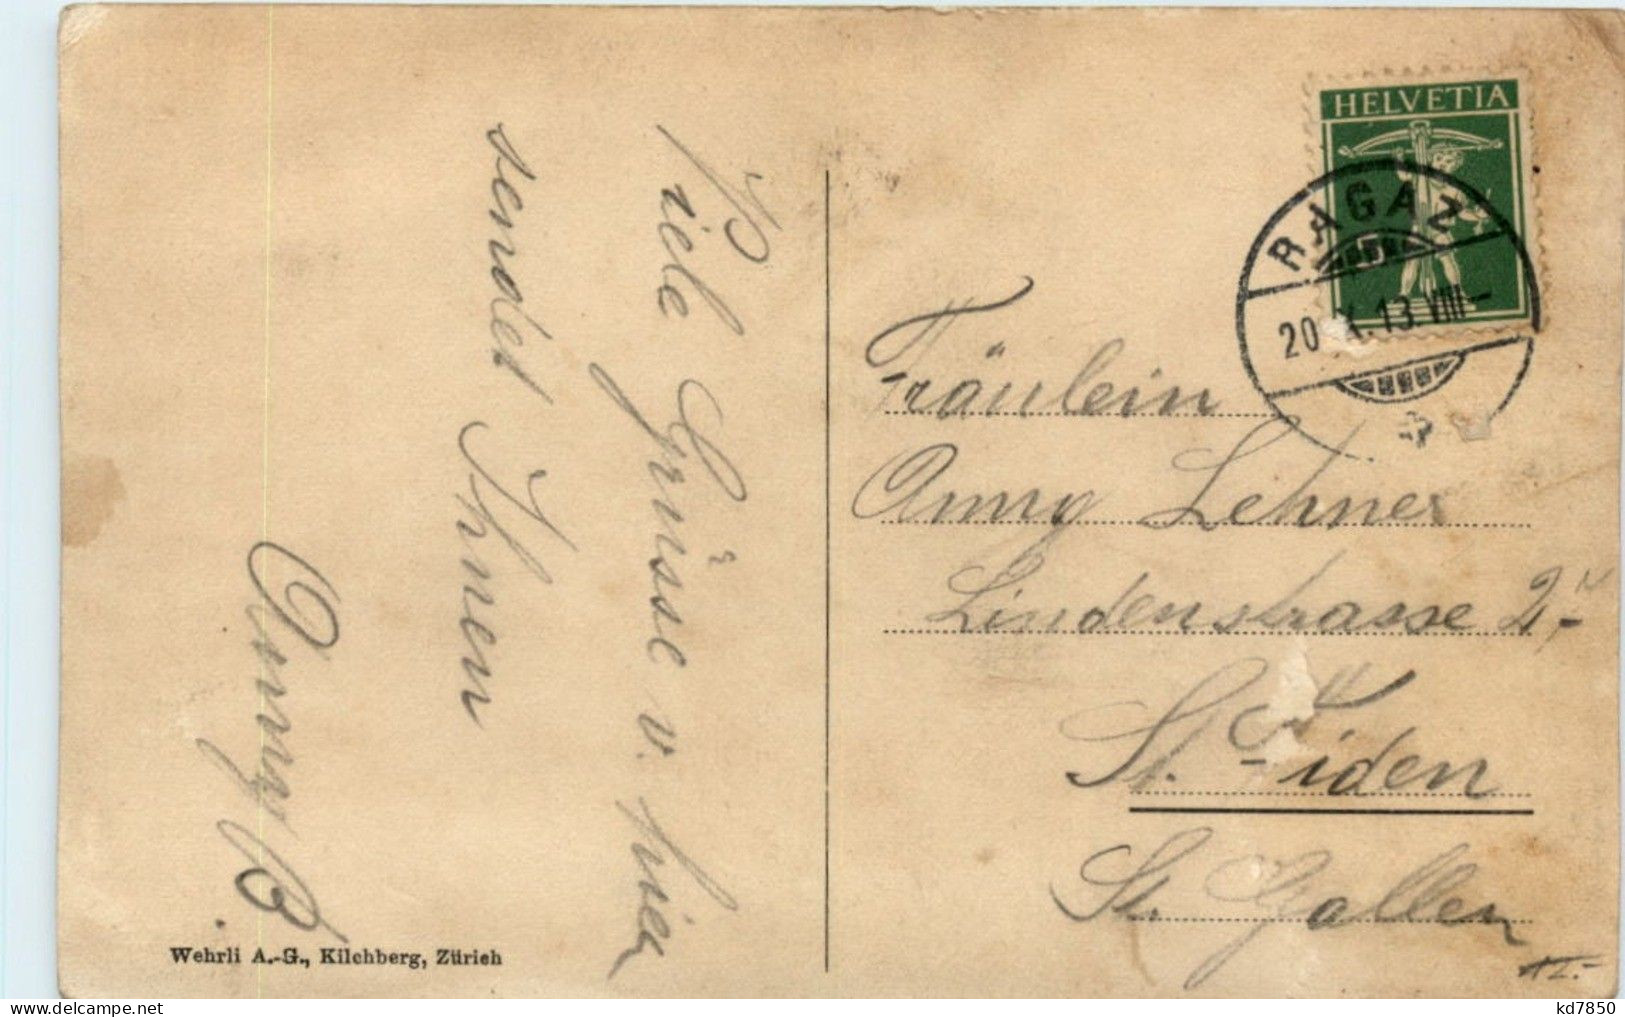 Viele Grüsse v. hier
sendet Ihnen
Anny B.
Wehrli A.-G., Kilchberg, Zürich
HELVETIA
RAGAZ
20. X. 13. VIII–
Fräulein
Anny Lehner
Lindenstrasse 2
St. Fiden
St. Gallen
kd7850